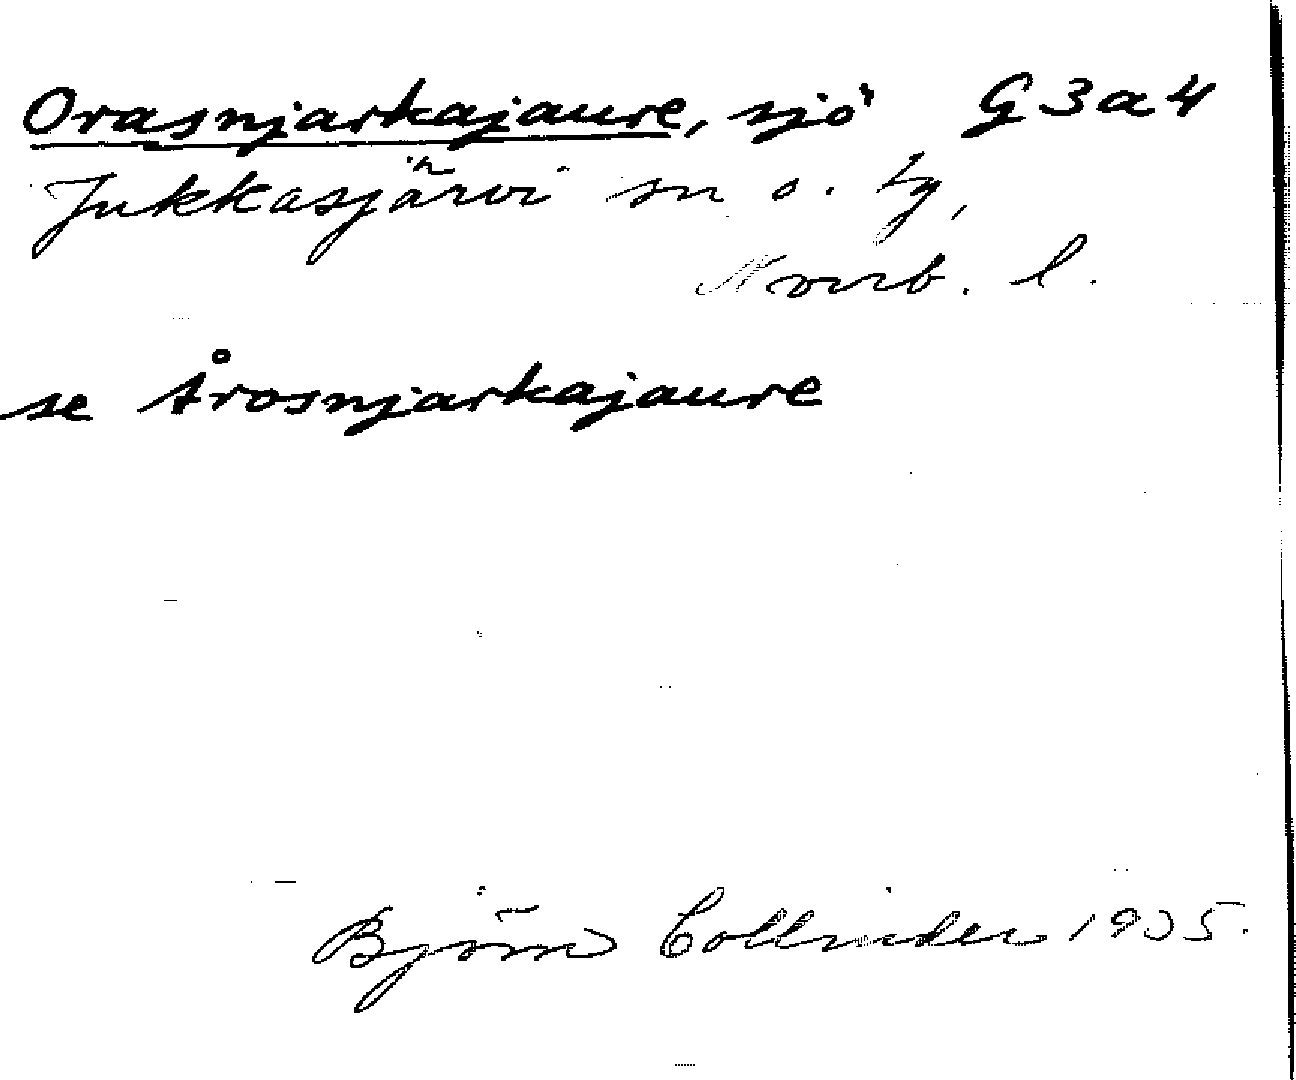 Orasnjarkajaure, sjö G3a4
Jukkasjärvi sn o. tg,
Norrb. l.
se Årosnjarkajaure
Björn Collinder 1935.